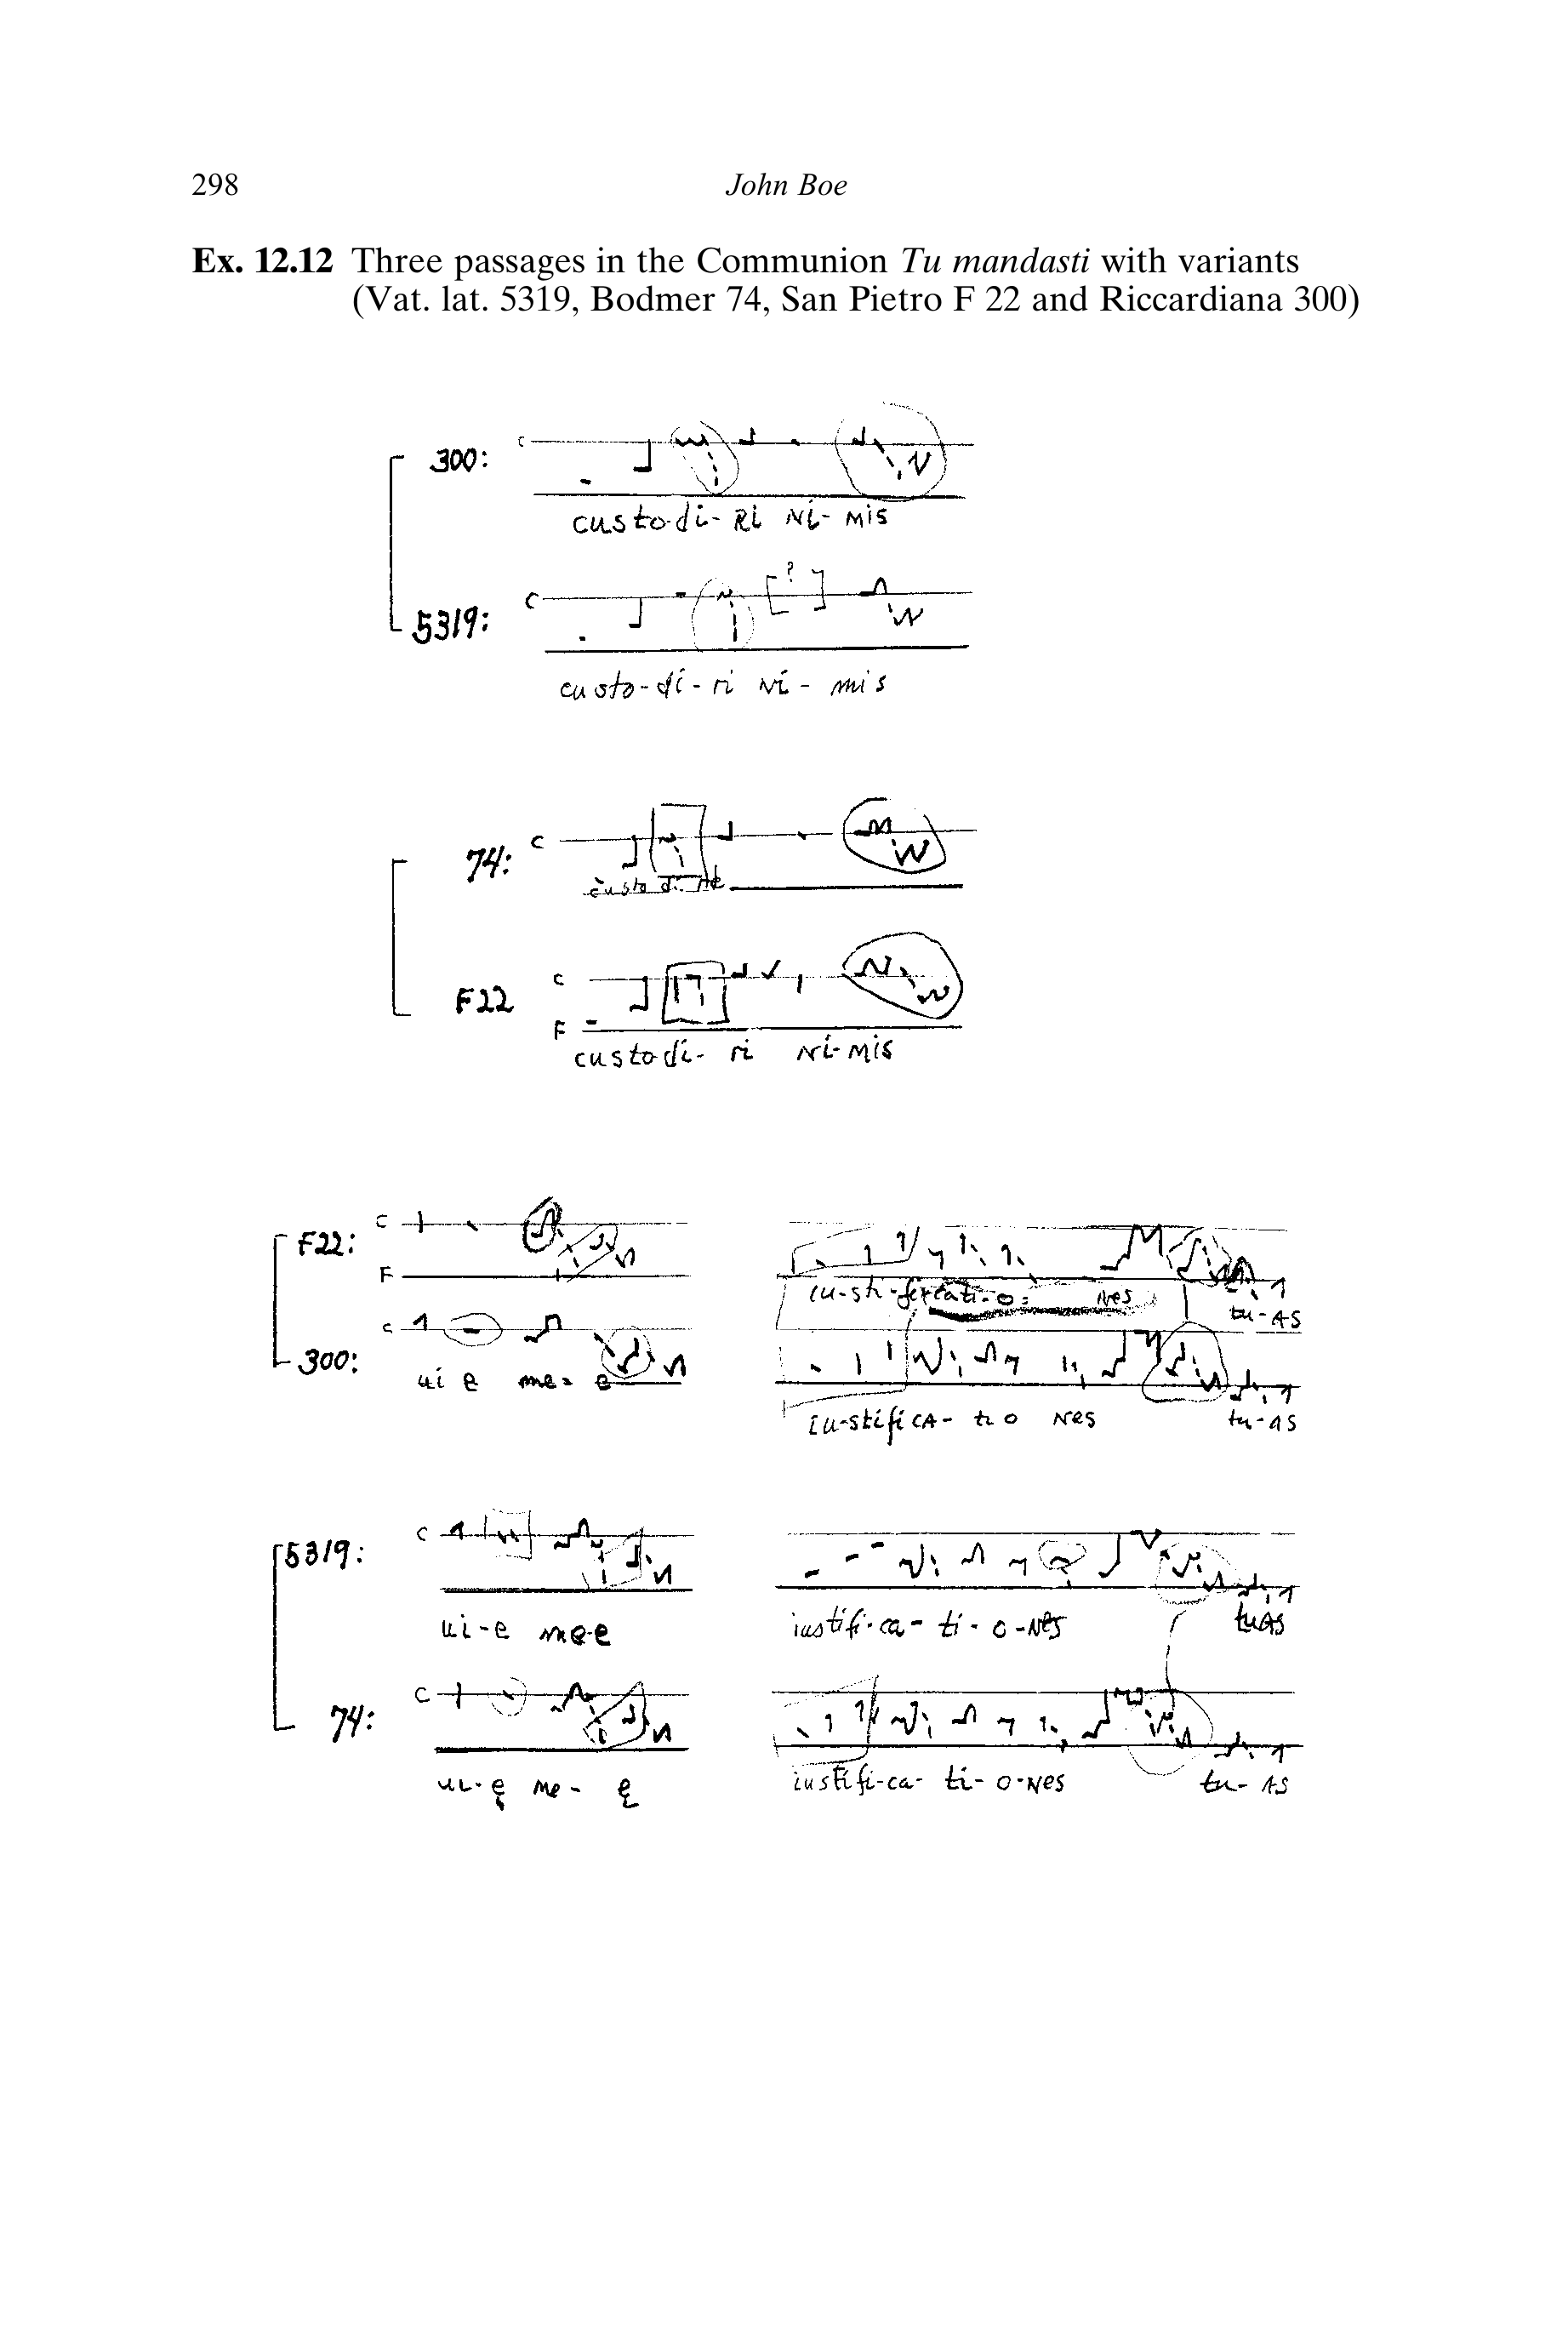 298 John Boe
Ex. 12.12 Three passages in the Communion Tu mandasti with variants
(Vat. lat. 5319, Bodmer 74, San Pietro F 22 and Riccardiana 300)
300: C
custo-di- Ri Ni- mis
5319: C [?]
custo-di-ri Ni- mis
74: C
custo di
F22 C
F
custo-di- ri Ni-mis
F22: C
F
iu-sti-ficati-o- nes tu-AS
300: C
ui e me- e
iu-stifi CA- ti o Nes tu-as
5319: C
ui-e me-e iustifi-ca- ti- o-Nes tuAS
74: C
ui-ę me- ę iustifi-ca- ti- o-Nes tu- AS